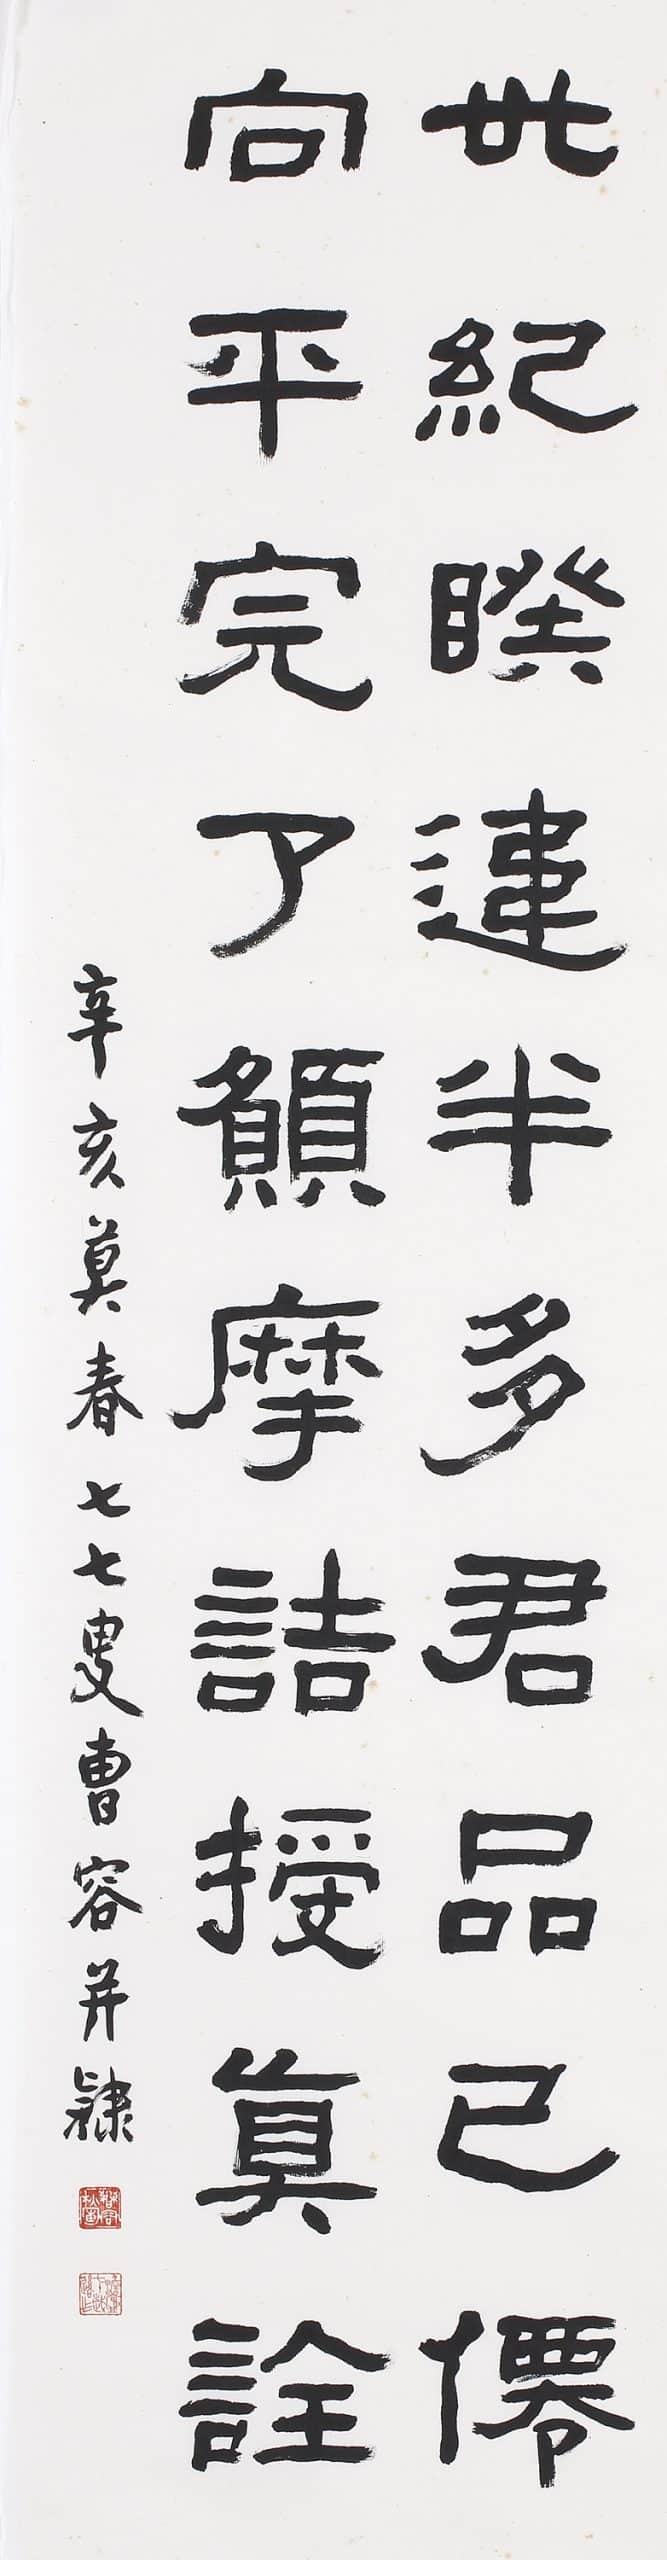 世紀睽違半多君品已僊
向平完了願摩詰授真詮
辛亥莫春七七叟曹容并隸